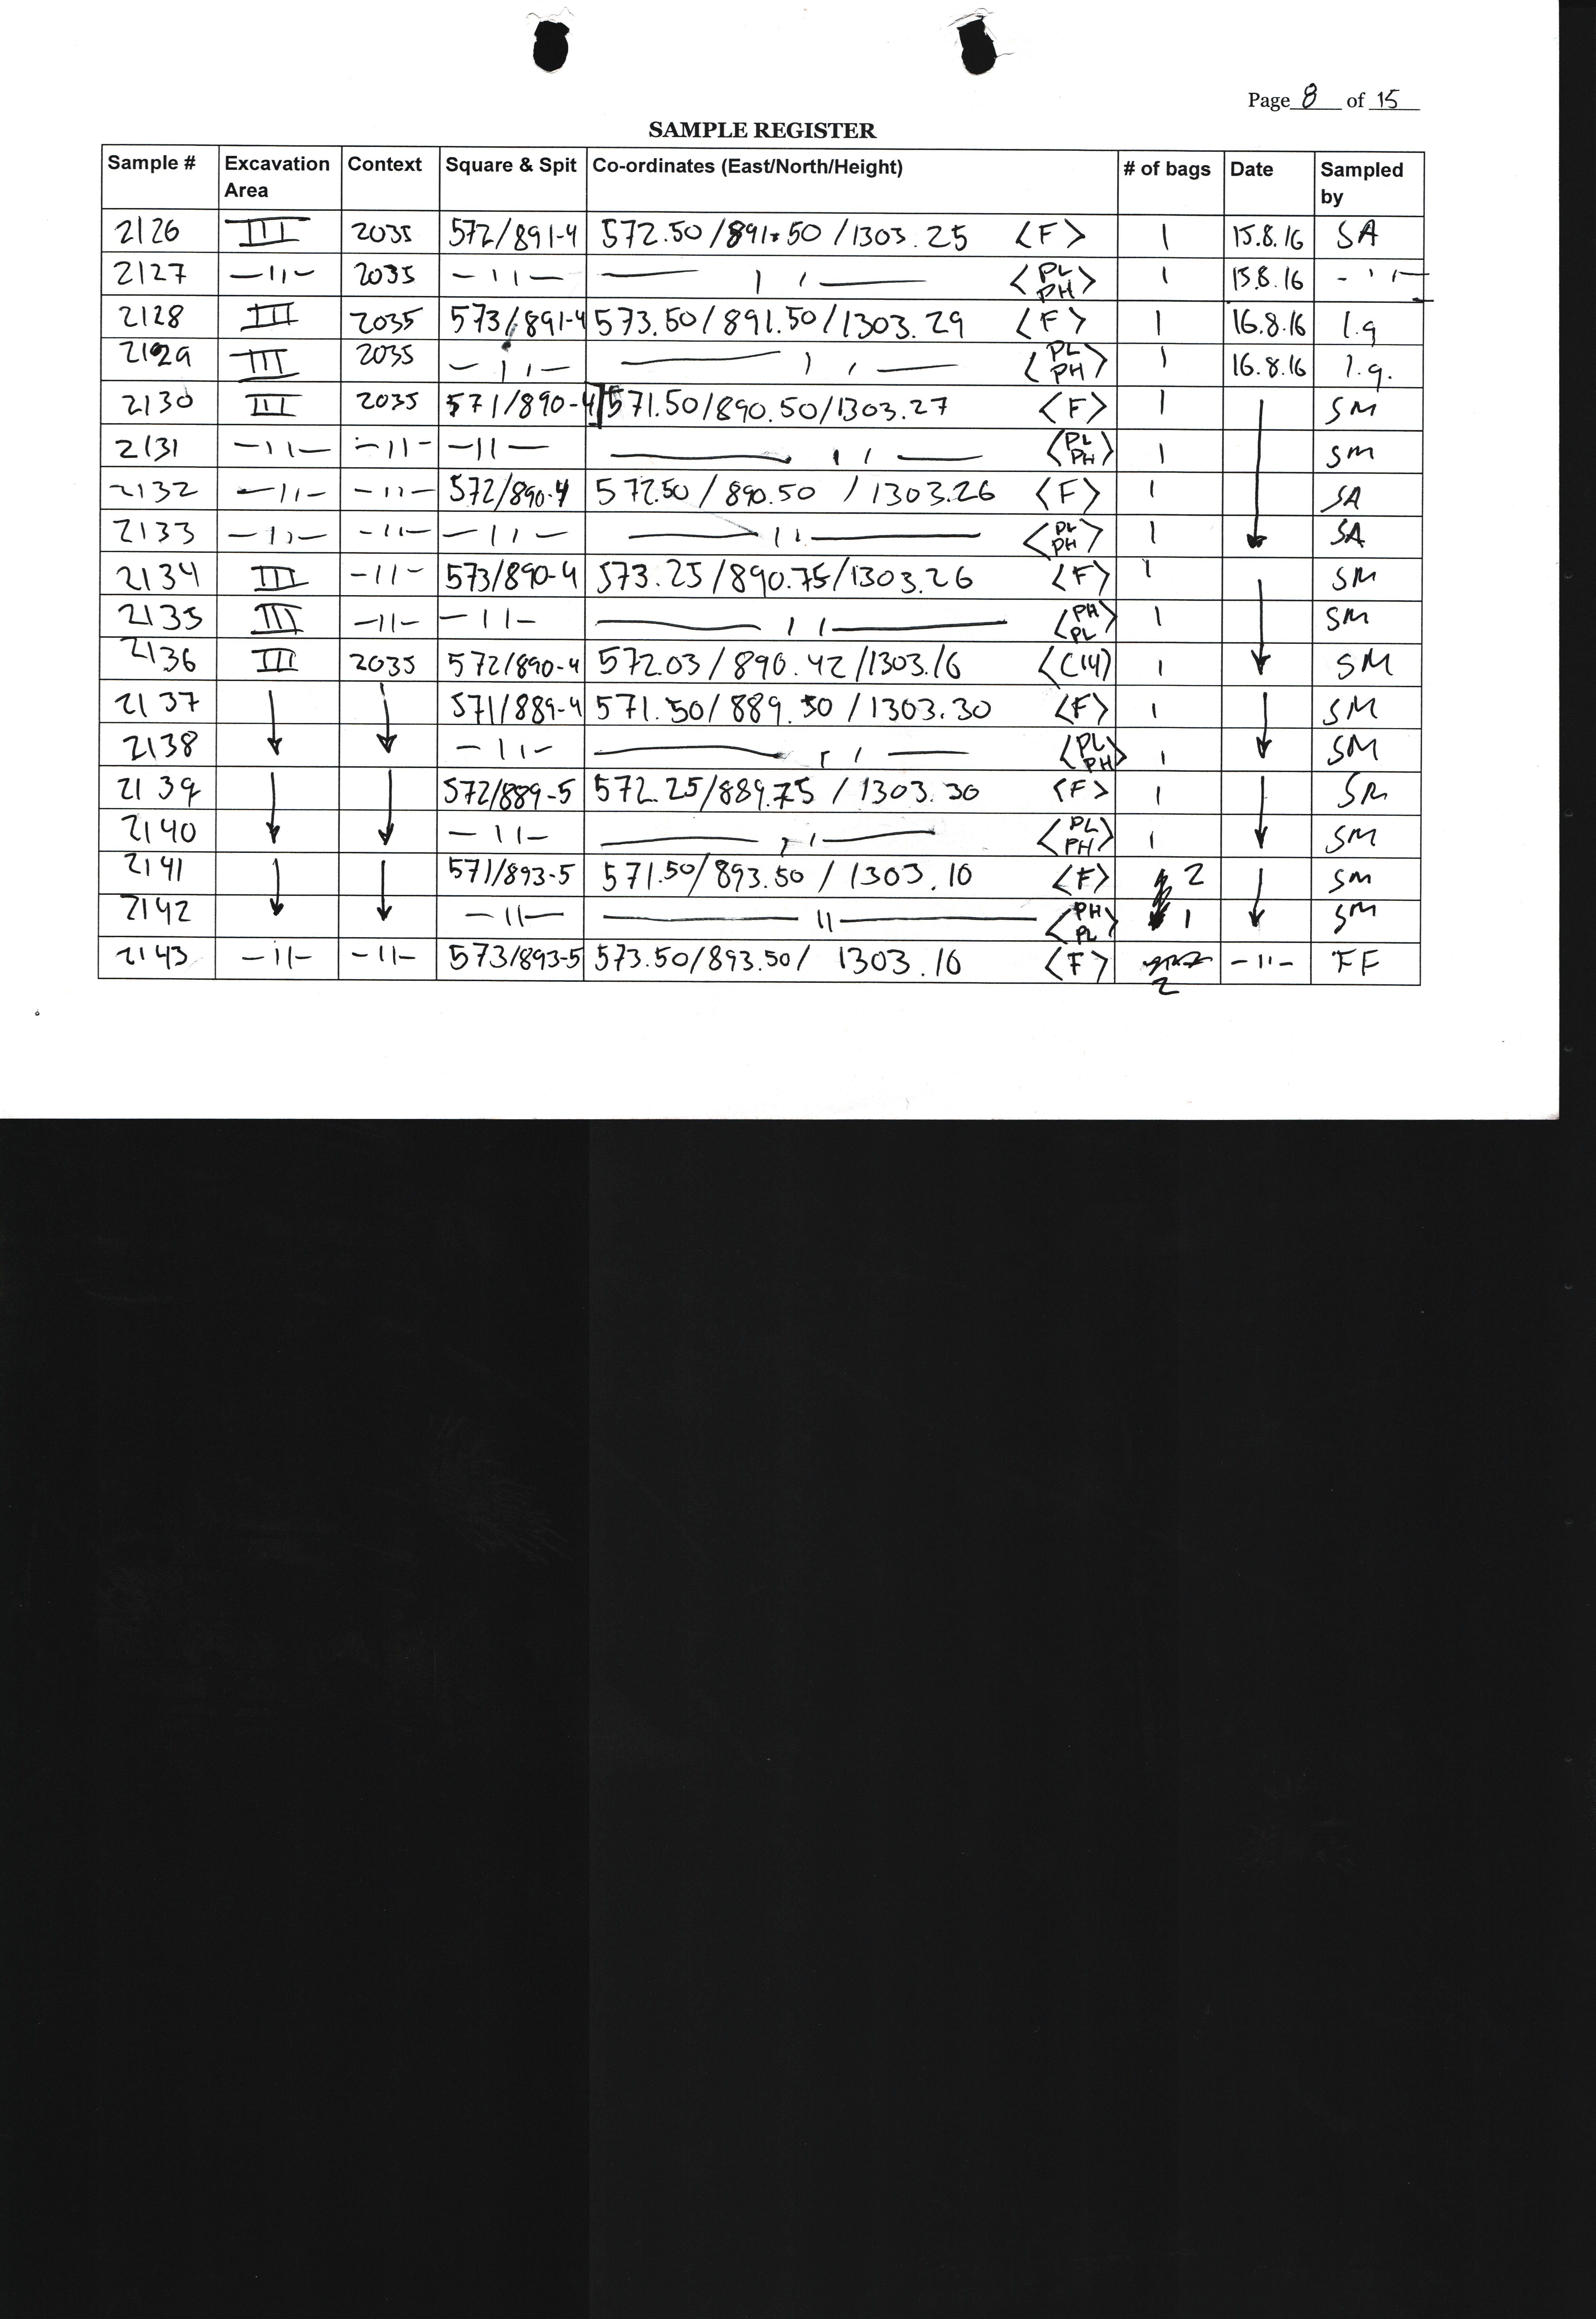 Page 8 of 15
SAMPLE REGISTER
Sample # Excavation Area Context Square & Spit Co-ordinates (East/North/Height) # of bags Date Sampled by
2126 III 2035 572/891-4 572.50/891.50/1303.25 <F> 1 15.8.16 SA
2127 —11— 2035 —11— —11— <PL PH> 1 15.8.16 —11—
2128 III 2035 573/891-4 573.50/891.50/1303.29 <F> 1 16.8.16 I.g
2129 III 2035 —11— —11— <PL PH> 1 16.8.16 I.g.
2130 III 2035 571/890-4 571.50/890.50/1303.27 <F> 1 SM
2131 —11— —11— —11— —11— <PL PH> 1 SM
2132 —11— —11— 572/890-4 572.50/890.50/1303.26 <F> 1 SA
2133 —11— —11— —11— —11— <PL PH> 1 SA
2134 III —11— 573/890-4 573.25/890.75/1303.26 <F> 1 SM
2135 III —11— —11— —11— <PH PL> 1 SM
2136 III 2035 572/890-4 572.03/890.42/1303.16 <C14> 1 SM
2137 571/889-4 571.50/889.50/1303.30 <F> 1 SM
2138 —11— —11— <PL PH> 1 SM
2139 572/889-5 572.25/889.75/1303.30 <F> 1 SM
2140 —11— —11— <PL PH> 1 SM
2141 571/893-5 571.50/893.50/1303.10 <F> 2 SM
2142 —11— —11— <PH PL> 1 SM
2143 —11— —11— 573/893-5 573.50/893.50/1303.16 <F> 2 —11— FF